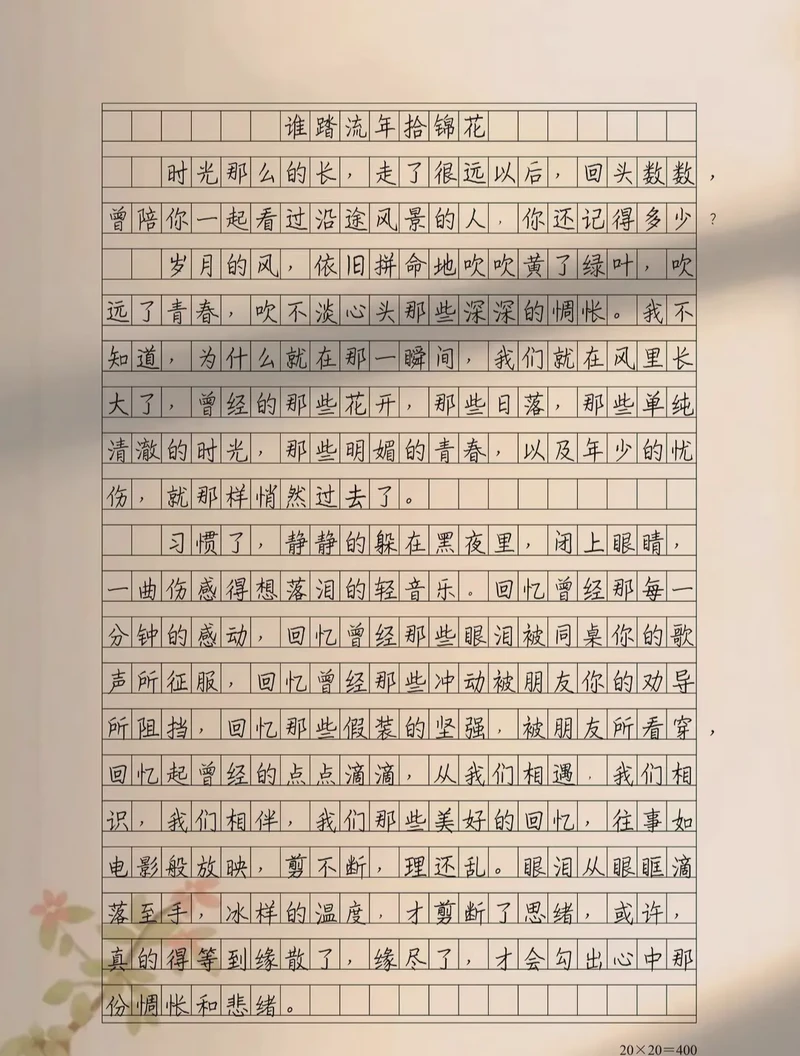 谁踏流年拾锦花
时光那么的长，走了很远以后，回头数数，
曾陪你一起看过沿途风景的人，你还记得多少？
岁月的风，依旧拼命地吹吹黄了绿叶，吹
远了青春，吹不淡心头那些深深的惆怅。我不
知道，为什么就在那一瞬间，我们就在风里长
大了，曾经的那些花开，那些日落，那些单纯
清澈的时光，那些明媚的青春，以及年少的忧
伤，就那样悄然过去了。
习惯了，静静的躲在黑夜里，闭上眼睛，
一曲伤感得想落泪的轻音乐。回忆曾经那每一
分钟的感动，回忆曾经那些眼泪被同桌你的歌
声所征服，回忆曾经那些冲动被朋友你的劝导
所阻挡，回忆那些假装的坚强，被朋友所看穿，
回忆起曾经的点点滴滴，从我们相遇，我们相
识，我们相伴，我们那些美好的回忆，往事如
电影般放映，剪不断，理还乱。眼泪从眼眶滴
落至手，冰样的温度，才剪断了思绪，或许，
真的得等到缘散了，缘尽了，才会勾出心中那
份惆怅和悲绪。
20×20=400